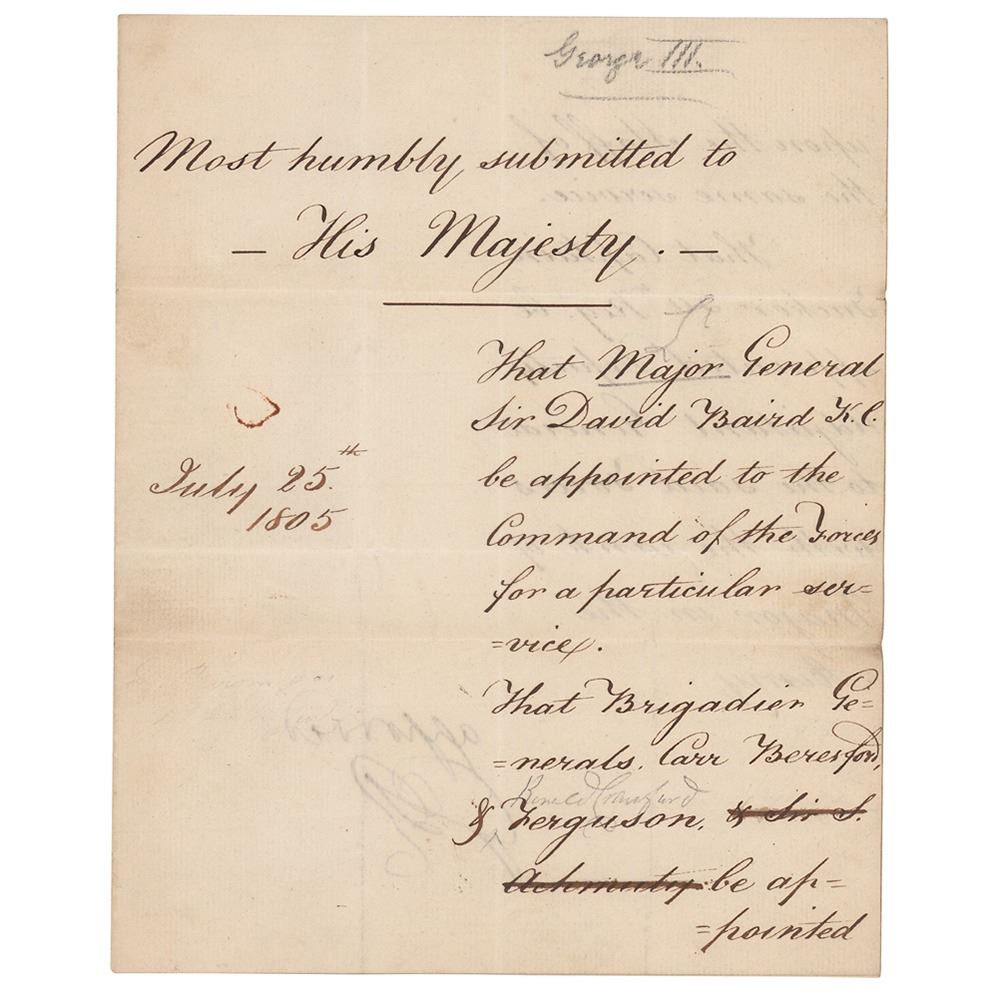 George III.
Most humbly submitted to
— His Majesty. —
That Major General
Sir David Baird K.C.
be appointed to the
Command of the Forces
for a particular ser=
=vice.
July 25.th
1805
That Brigadier Ge=
=nerals. Carr Beresford,
& Ferguson, & Sir S.
Achmuty be ap=
=pointed